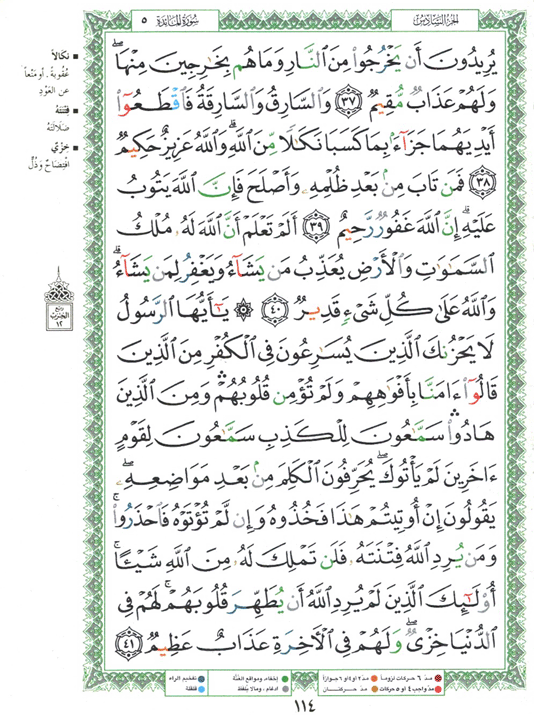 الجزء السادس
سورة المائدة ٥
يُرِيدُونَ أَن يَخْرُجُوا۟ مِنَ ٱلنَّارِ وَمَا هُم بِخَٰرِجِينَ مِنْهَا ۖ
وَلَهُمْ عَذَابٌ مُّقِيمٌ ﴿٣٧﴾ وَٱلسَّارِقُ وَٱلسَّارِقَةُ فَٱقْطَعُوٓا۟
أَيْدِيَهُمَا جَزَآءًۢ بِمَا كَسَبَا نَكَٰلًا مِّنَ ٱللَّهِ ۗ وَٱللَّهُ عَزِيزٌ حَكِيمٌ
﴿٣٨﴾ فَمَن تَابَ مِنۢ بَعْدِ ظُلْمِهِۦ وَأَصْلَحَ فَإِنَّ ٱللَّهَ يَتُوبُ
عَلَيْهِ ۗ إِنَّ ٱللَّهَ غَفُورٌ رَّحِيمٌ ﴿٣٩﴾ أَلَمْ تَعْلَمْ أَنَّ ٱللَّهَ لَهُۥ مُلْكُ
ٱلسَّمَٰوَٰتِ وَٱلْأَرْضِ يُعَذِّبُ مَن يَشَآءُ وَيَغْفِرُ لِمَن يَشَآءُ ۗ
وَٱللَّهُ عَلَىٰ كُلِّ شَىْءٍ قَدِيرٌ ﴿٤٠﴾ ۞ يَٰٓأَيُّهَا ٱلرَّسُولُ
لَا يَحْزُنكَ ٱلَّذِينَ يُسَٰرِعُونَ فِى ٱلْكُفْرِ مِنَ ٱلَّذِينَ
قَالُوٓا۟ ءَامَنَّا بِأَفْوَٰهِهِمْ وَلَمْ تُؤْمِن قُلُوبُهُمْ ۛ وَمِنَ ٱلَّذِينَ
هَادُوا۟ ۛ سَمَّٰعُونَ لِلْكَذِبِ سَمَّٰعُونَ لِقَوْمٍ
ءَاخَرِينَ لَمْ يَأْتُوكَ ۖ يُحَرِّفُونَ ٱلْكَلِمَ مِنۢ بَعْدِ مَوَاضِعِهِۦ ۖ
يَقُولُونَ إِنْ أُوتِيتُمْ هَٰذَا فَخُذُوهُ وَإِن لَّمْ تُؤْتَوْهُ فَٱحْذَرُوا۟ ۚ
وَمَن يُرِدِ ٱللَّهُ فِتْنَتَهُۥ فَلَن تَمْلِكَ لَهُۥ مِنَ ٱللَّهِ شَيْـًٔا ۚ
أُو۟لَٰٓئِكَ ٱلَّذِينَ لَمْ يُرِدِ ٱللَّهُ أَن يُطَهِّرَ قُلُوبَهُمْ ۚ لَهُمْ فِى
ٱلدُّنْيَا خِزْىٌ ۖ وَلَهُمْ فِى ٱلْءَاخِرَةِ عَذَابٌ عَظِيمٌ ﴿٤١﴾
نَكَالاً
عُقُوبةً. أو مَنْعاً
عن العَوْدِ
فِتْنَتَهُ
ضَلَالَتَهُ
خِزْيٌ
افْتِضَاحٌ وَذُلٌّ
ربع
الحزب
١٢
مدّ ٦ حركات لزوماً
مدّ ٢ أو ٤ أو ٦ جوازاً
إخفاء، ومواقع الغُنَّة
تفخيم الراء
مدّ واجب ٤ أو ٥ حركات
مدّ حركتان
إدغام، وما لا يُلفظ
قلقلة
١١٤